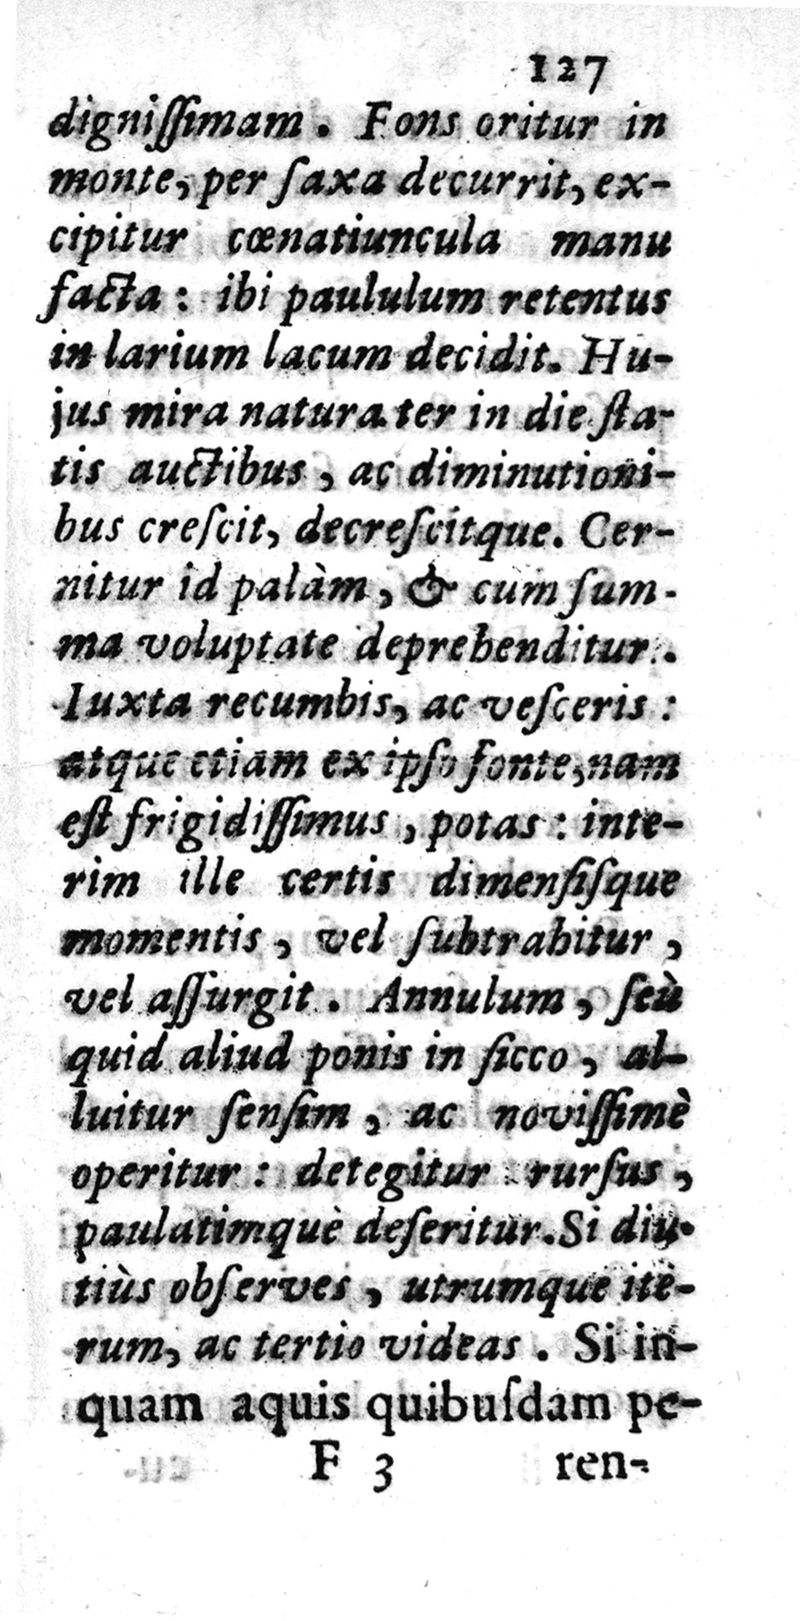 127
digniſſimam. Fons oritur in
monte, per ſaxa decurrit, ex-
cipitur cœnatiuncula manu
facta: ibi paululum retentus
in larium lacum decidit. Hu-
jus mira natura ter in die ſta-
tis auctibus, ac diminutioni-
bus creſcit, decreſcitque. Cer-
nitur id palàm, & cum ſum-
ma voluptate deprehenditur.
Iuxta recumbis, ac veſceris:
atque etiam ex ipſo fonte, nam
eſt frigidiſſimus, potas: inte-
rim ille certis dimenſiſque
momentis, vel ſubtrahitur,
vel aſſurgit. Annulum, ſeù
quid aliud ponis in ſicco, al-
luitur ſenſim, ac noviſſimè
operitur: detegitur rurſus,
paulatimquè deſeritur. Si diu-
tiùs obſerves, utrumque ite-
rum, ac tertio videas. Si in-
quam aquis quibuſdam pe-
F 3 ren-